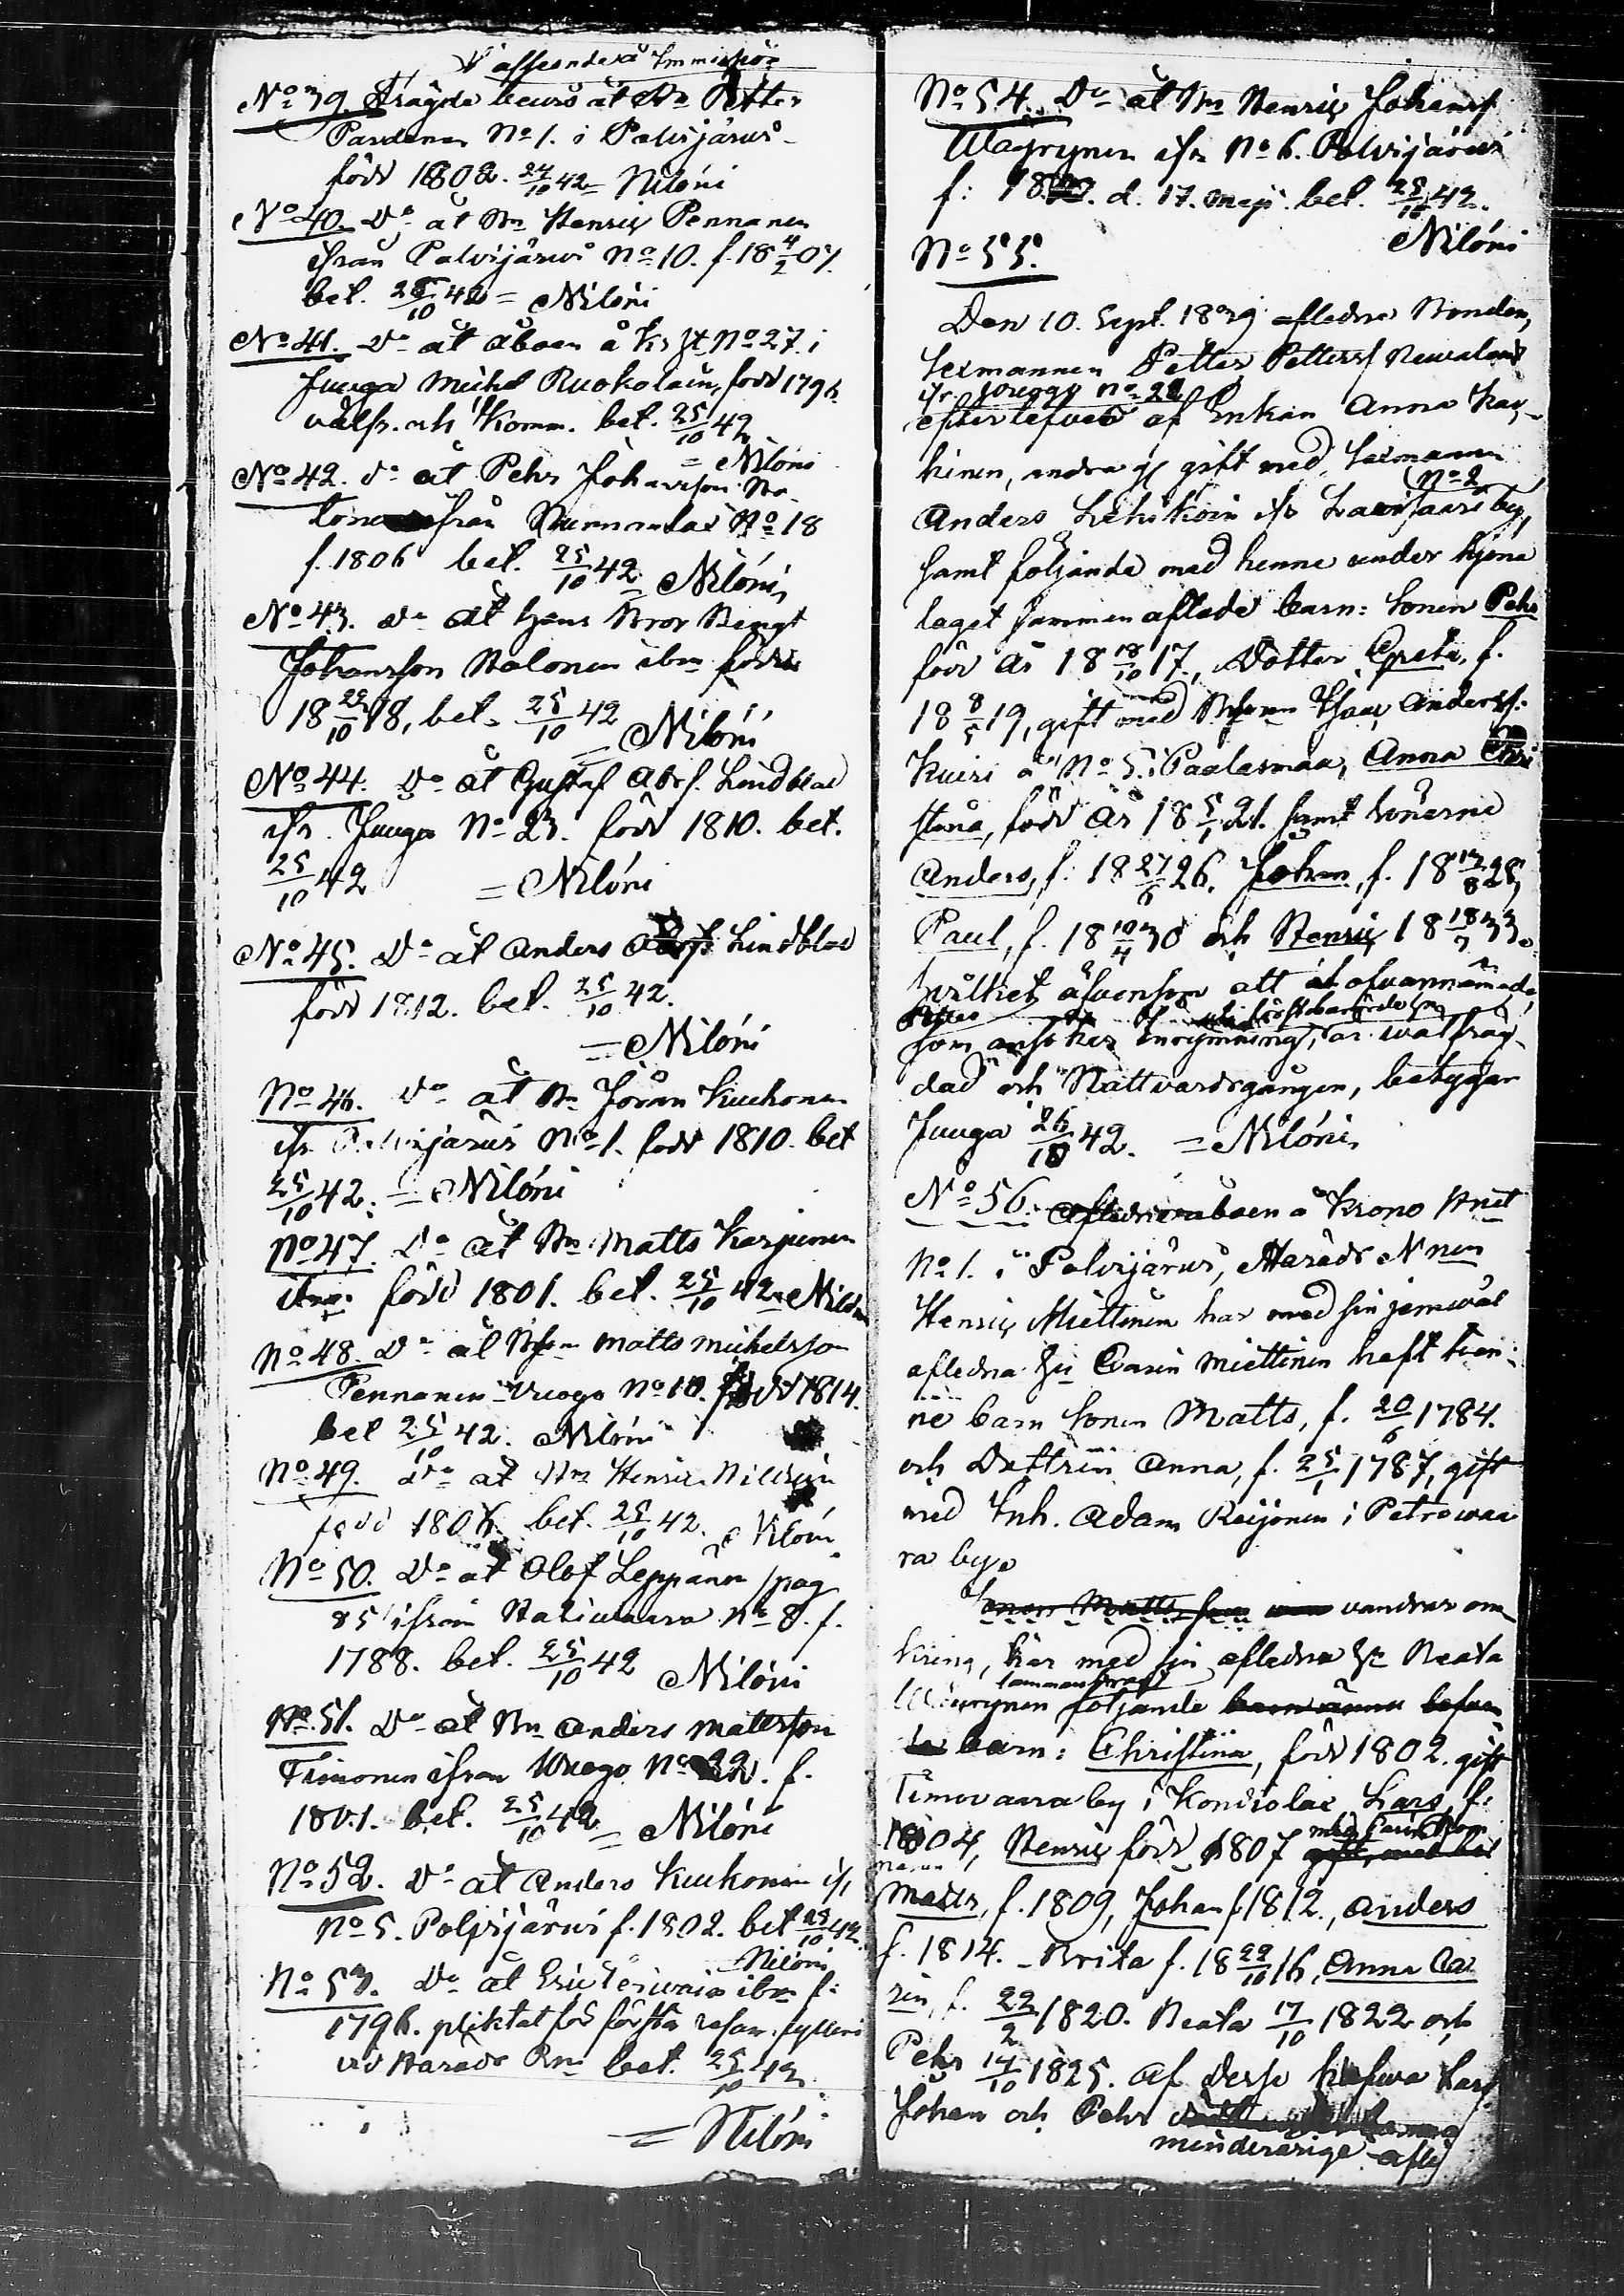 No 39. Frägde bevis åt Bn Petter
No 1. i Polvijärvi
född 1802. 24/10 42 = Nilóni
No 40. Do åt Bn Henric Pennanen
ifrån Polvijärvi No 10. f. 18 4/2 07.
bet. 25/10 42 = Nilóni
No 41. Do åt åboen å No 27 i
Juuga Michel Ruokolain, född 1796
välfr. och Komm. bet. 25/10 42
= Nilóni
No 42. Do åt Pehr Johansson
ifrån Nunnanlax No 18
f. 1806 bet. 25/10 42 = Nilóni
No 43. Do åt hans Bror Bengt
Johansson ibm född
18 22/10 18, bet. 25/10 42
= Nilóni
No 44. Do åt Gustaf Abrs. Lindblad
ifr. Juuga No 23. född 1810. bet.
25/10 42 = Nilóni
No 45. Do åt Anders Lindblad
född 1812. bet. 25/10 42.
= Nilóni
No 46. Do åt Bn Jöran Kuckonen
ifr Polvijärvi No 1. född 1810. bet
25/10 42. = Nilóni
No 47. Do åt Bn Matts Karjunen
född 1801. bet. 25/10 42 =
No 48. Do åt Matts Michelsson
Pennanen Vuogo No 10. född 1814.
bet 25/10 42. Nilóni
No 49. Do åt Bn Henric
född 1806. bet. 25/10 42. Nilóni
No 50. Do åt Olof Leppänen pag
85 ifrån No 8. f.
1788. bet. 25/10 42 Nilóni
No 51. Do åt Bn Anders Mattsson
Timonen ifrån Vuogo No 22. f.
1801. bet. 25/10 42 = Nilóni
No 52. Do åt Anders Kuckonen ifr
No 5. Polvijärvi f. 1802. bet 25/10 42.
Nilóni
No 53. Do åt Eric ibm f:
1796. pliktat för första resan fylleri
vid Härads Rn bet. 25/10 42
= Nilóni
No 54. Do åt Bn Henric Johanss
Wäyrynen ifrn No 6. Polvijärvi
f: d. 17. Maji. bet. 25/10 42.
Nilóni
No 55.
Den 10. Sept. 1839 afledne Bonden,
Sexmannen Petter Petterss
ifr. Vuogo No 21
efterlefves af Enkan Anna Kar-
hinen, andra gg gift med Sexmannen
No 2
Anders Lehikoin ifr by,
samt följande med henne under hjona
laget sammanaflade barn: Sonen Pehr
född år 18 18/10 17, Dotter Greta, f.
18 8/5 19, gift med Anderss:
Kuiri å No 5. i Paalasmaa, Anna Chri
stina, född år 18 5/1 21. samt Sönerne
Anders, f: 18 27/6 26. Johan, f. 18 13/8 28,
Paul, f. 18 10/4 30 och Henric 18 18/7 33.
hvilket äfvensom att ofvannämnde
Petter
som ansöker inrymning, är wälfräg-
dad och Nattvardsgången, betygar
Juuga 26/10 42. = Nilóni
No 56. Afledne åboen å Krono Hmt
No 1. i Polvijärvi, Härads Nmn
Henric Miettinen har med sin jemväl
afledna Hu Carin Miettinen haft tven-
ne barn Sonen Matts, f. 20/6 1784.
och Dottren Anna, f. 25/1 1787, gift
med Inh. Adam Reijonen i Petrowaa
ra by.
Sonen Matts som vandrar om-
kring, har med sin afledna Hu Beata
sammanaflat
Wäyrynen följande
barn: Christina, född 1802. gift
Timovaara by i Kondiolax Lars, f:
1804, Henric född 1807
Matts, f. 1809, Johan f. 1812., Anders
f. 1814. Brita f. 18 22/10 16, Anna Ca
rin, f. 22/2 1820. Beata 17/10 1822 och
Pehr 14/10 1825. af desse hafva Lars
Johan och Pehr
minderårige afl